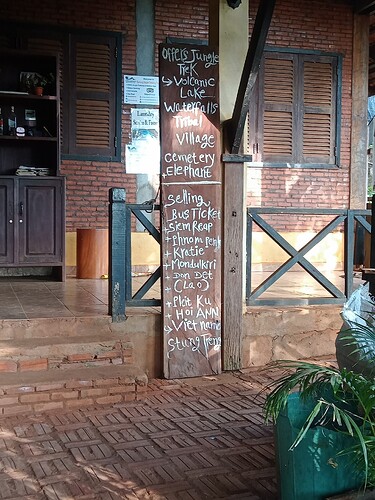 Offers Jungle
Trek
↳ Volcanic
Lake
Waterfalls
Tribal
Village
cemetery
+ Elephant
selling
Bus Ticket
+ Siem Reap
+ Phnom penh
+ Kratie
+ Mondulkiri
+ Don Det
(Lao)
+ Ploit Ku
+ Hoi ANN
↳ Vietname
Stung Treng
Laundry